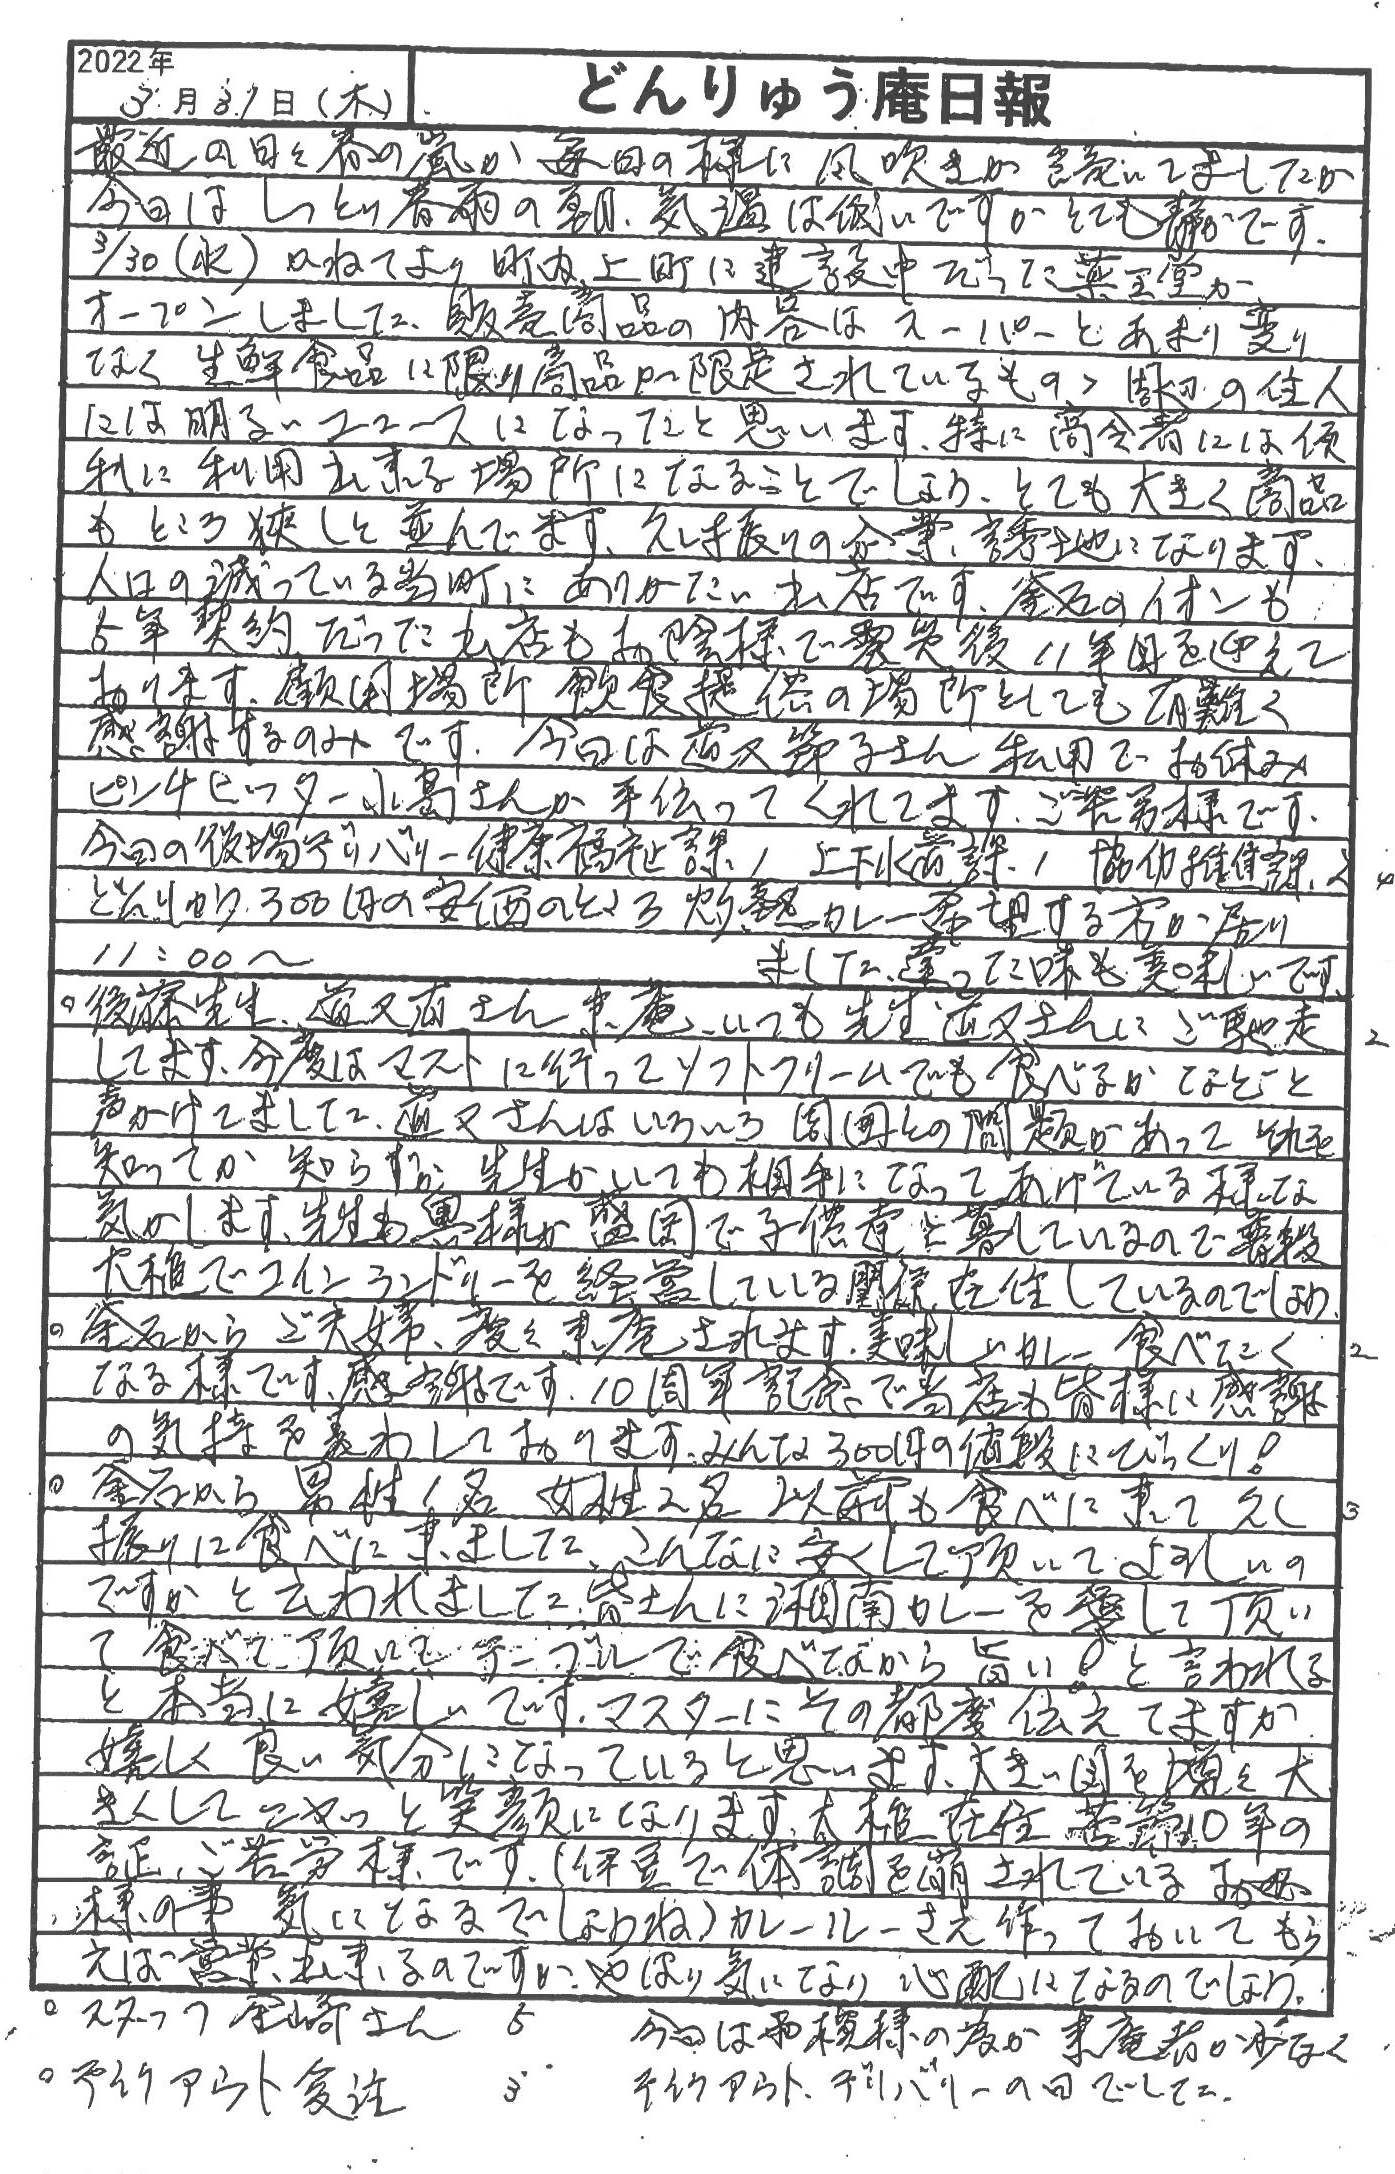 2022年
3月31日(木)
どんりゅう庵日報
最近の日々春の嵐が毎日の様に風吹きが続いてましたが
今日はしっとり春雨の朝、気温は低いですがとても静かです。
3/30(水) かねてより町内上町に建設中だった薬王堂が
オープンしました、販売商品の内容はスーパーとあまり変り
なく生鮮食品に限り商品が限定されているもの、周辺の住人
には明るいニュースになったと思います、特に高令者には便
利に利用出来る場所になることでしょう、とても大きく商品
もところ狭しと並んでます、久し振りの企業誘地になります、
人口の減っている当町にありがたい出店です、釜石のイオンも
5年契約だった出店もお陰様で震災後11年目を迎えて
おります、雇用場所 飲食提供の場所としても有難く
感謝するのみです、今日は道又節子さん私用でお休み
ピンチヒッター小島さんが手伝ってくれてます、ご苦労様です、
今日の役場デリバリー健康福祉課1 上下水道課1 協働推進課2 4
どんりゅう300円の安価のところ灼熱カレー希望する方が居り
11:00〜 ました、違った味も美味しいです、
○後藤先生、道又 さん来庵、いつも先生道又さんにご馳走 2
してます、今度はマストに行ってソフトクリームでも食べるかなどと
声かけてました、道又さんはいろいろ周囲との問題があって それを
知ってか知らずか 先生がいつも相手になってあげている様な
気がします、先生も奥様が盛岡で子供達と暮しているので普段
大槌でコインランドリーを経営している関係在住しているのでしょう、
○釜石からご夫婦、度々来庵されます、美味しいカレー食べたく 2
なる様です、感謝です、10周年記念で当店も皆様に感謝
の気持を表わしております、みんな300円の値段にびっくり!
○釜石から男性1名 女性2名 以前も食べに来て久し 3
振りに食べに来ました、こんなに安くして頂いてよろしいの
ですかと云われました、皆さんに湘南カレーを愛して頂い
て食べて頂いて、テーブルで食べながら旨い!と言われる
と本当に嬉しいです、マスターにその都度伝えてますが
嬉しく良い気分になっていると思います、大きい目を増々大
きくしてニヤッと笑顔になります、大槌在住 苦節10年の
証、ご苦労様です、(伊豆で体調を崩されている お母
様の事 気になるでしょうね)カレールーさえ作っておいてもら
えば営業出来るのですが、やはり気になり心配になるのでしょう。
○スタッフ 尾崎さん 5 今日は雨模様の為か来庵者が少なく
○テイクアウト 受注 3 テイクアウト、デリバリーの日でした。